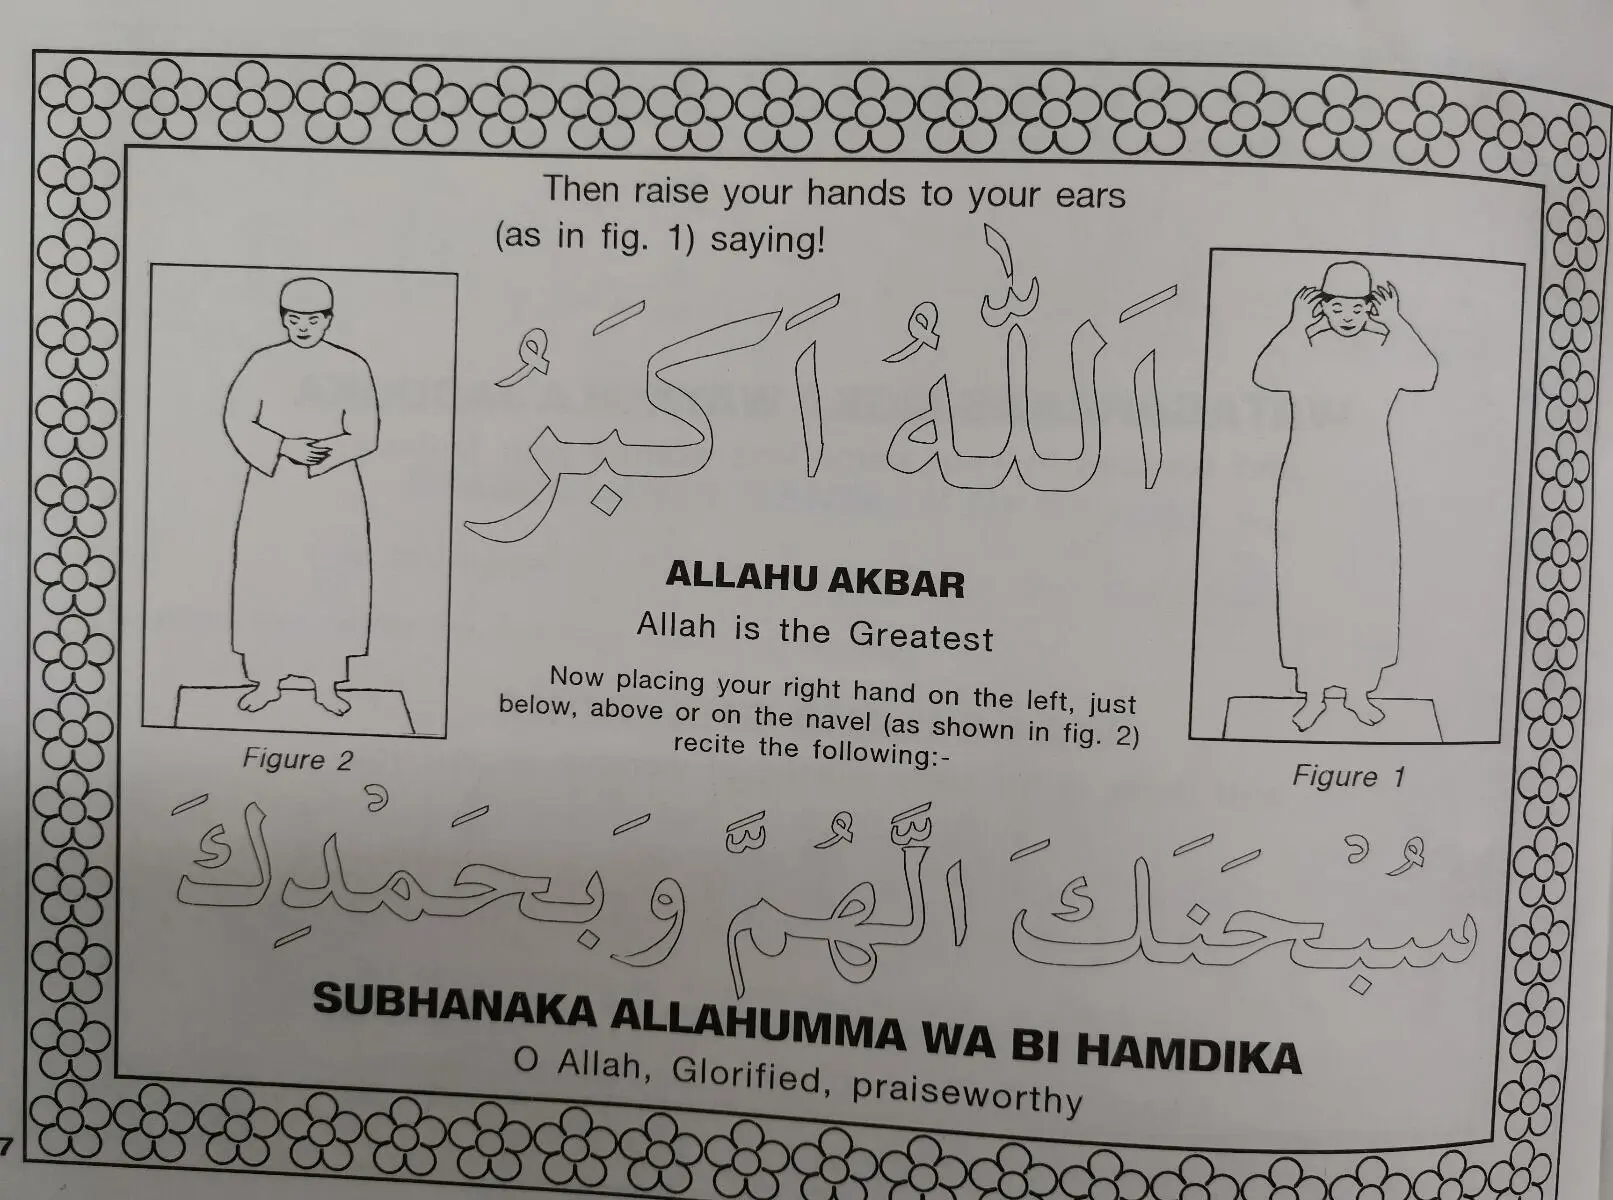 Then raise your hands to your ears
(as in fig. 1) saying!
اَللّٰهُ اَكبَرُ
ALLAHU AKBAR
Allah is the Greatest
Now placing your right hand on the left, just
below, above or on the navel (as shown in fig. 2)
recite the following:-
Figure 2
Figure 1
سُبْحَنَكَ الَّهُمَّ وَبَحَمْدِكَ
SUBHANAKA ALLAHUMMA WA BI HAMDIKA
O Allah, Glorified, praiseworthy
7